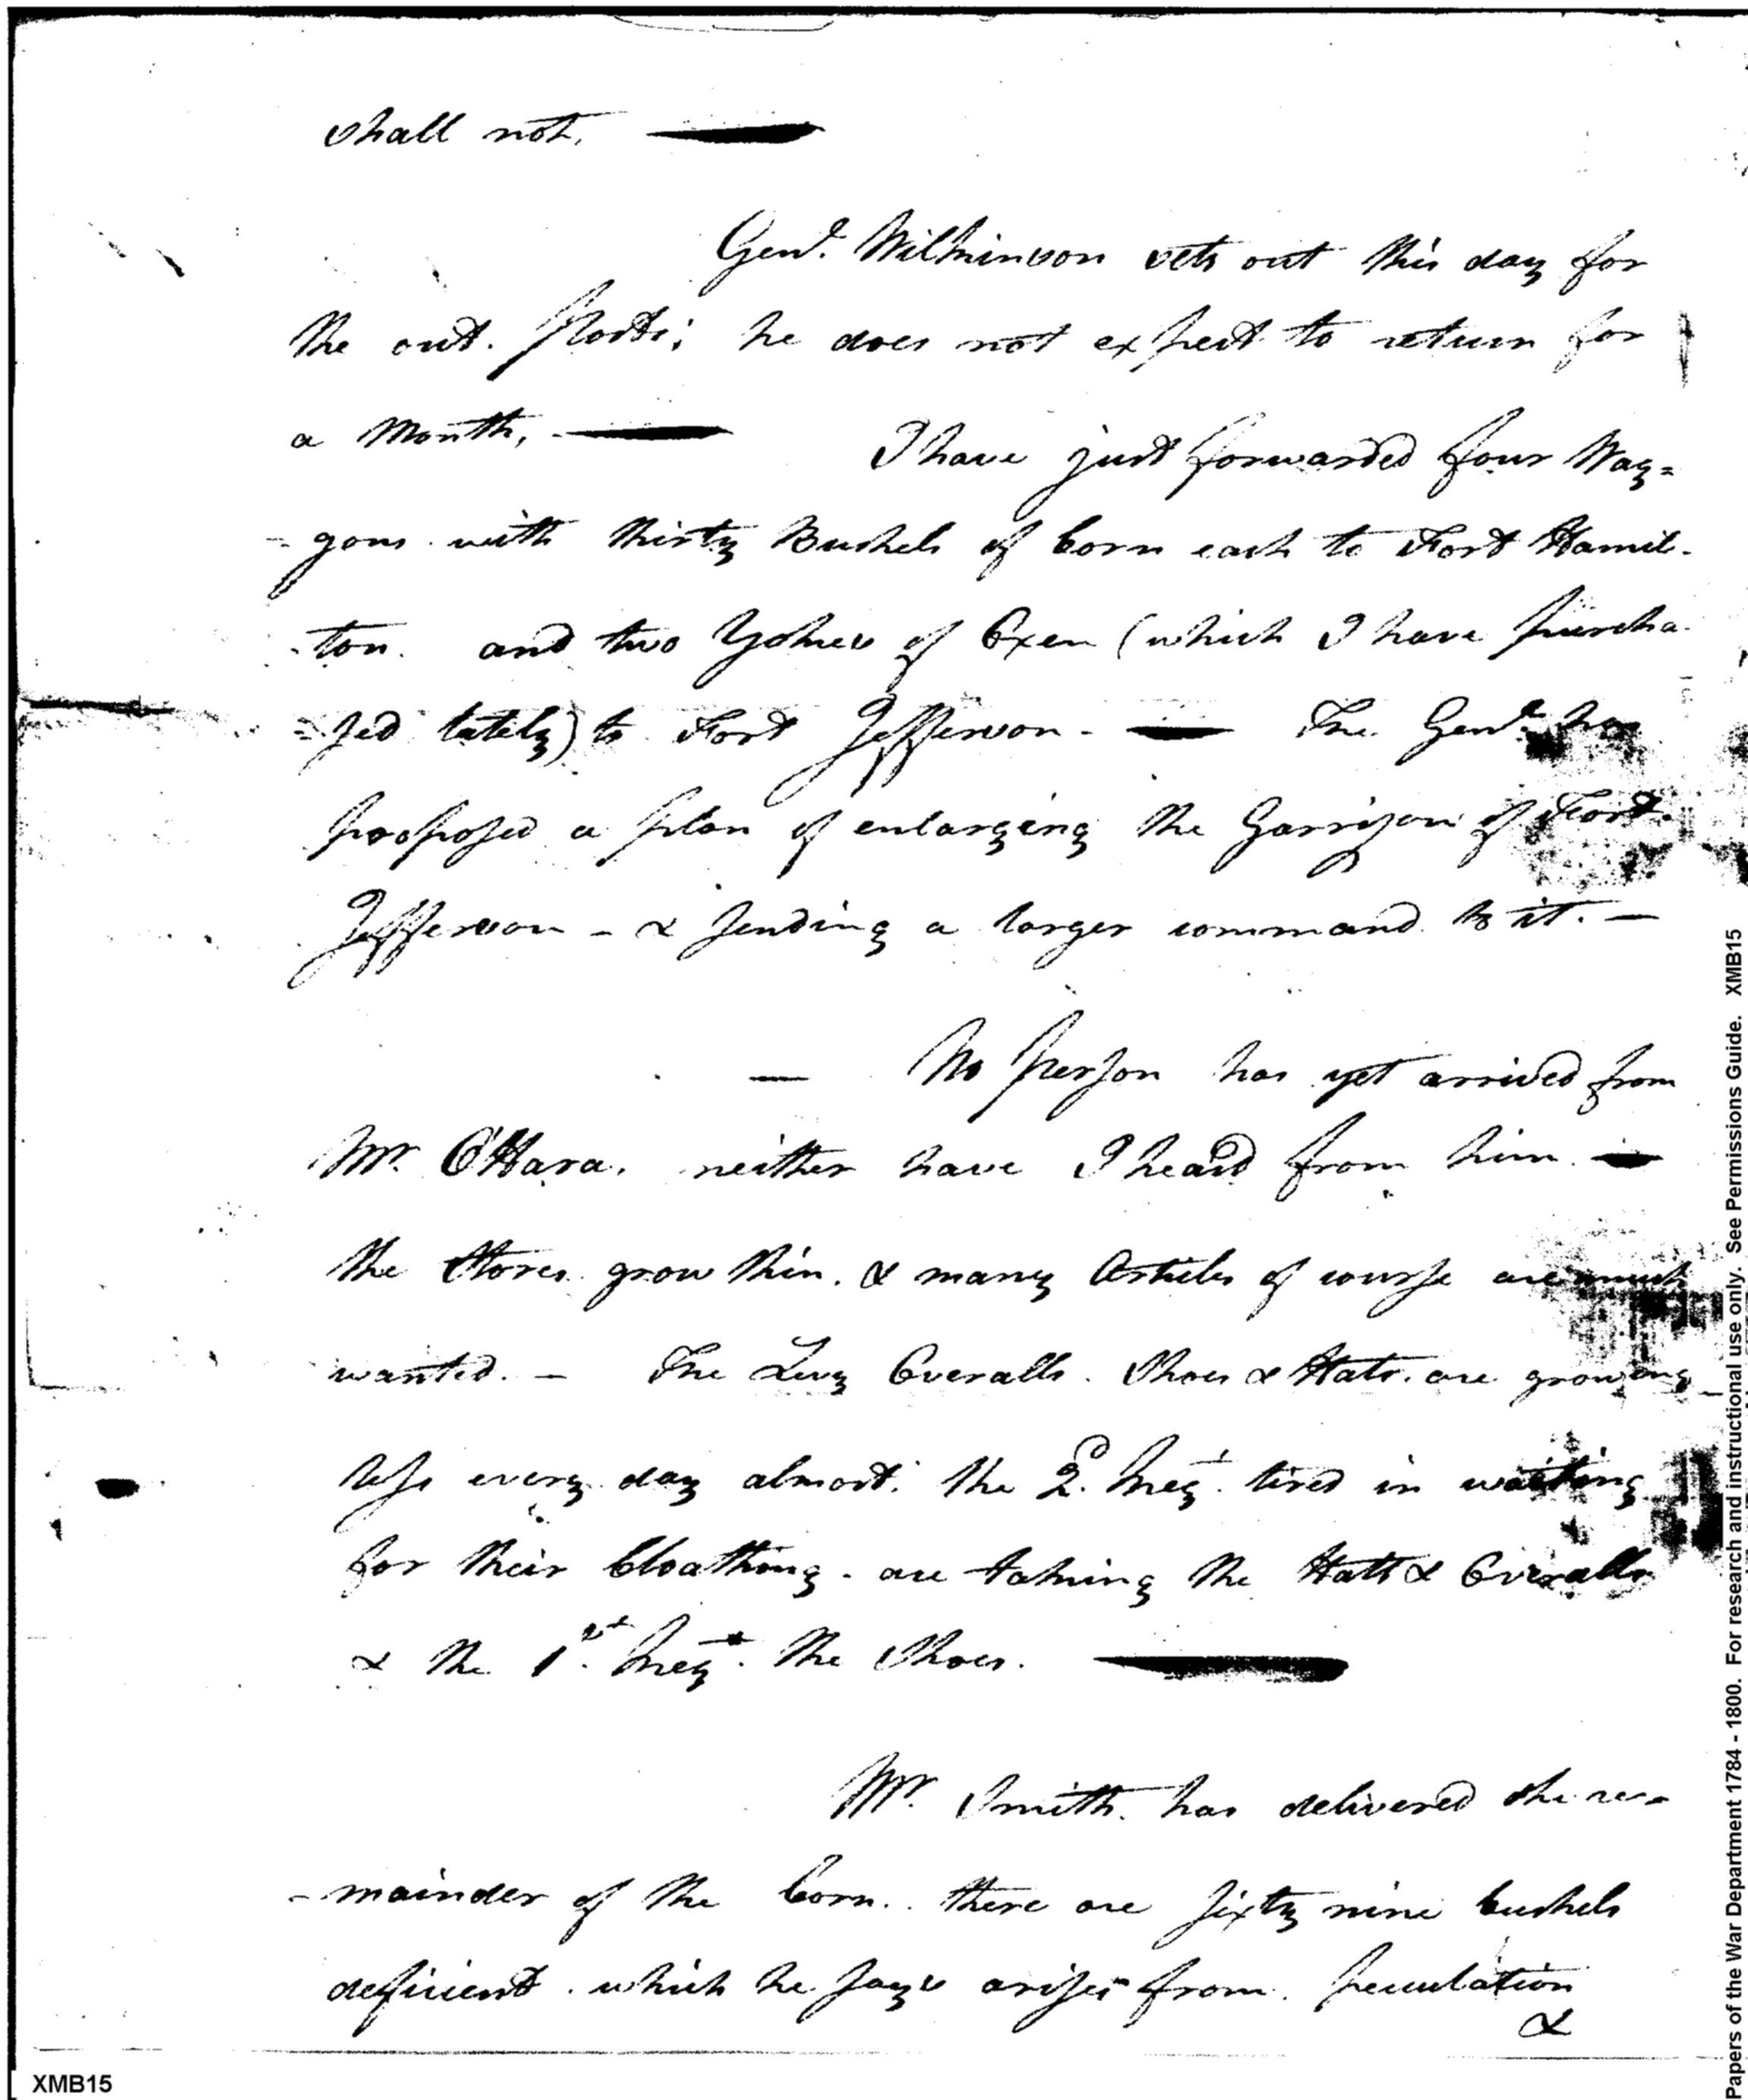 shall not. —
Genl. Wilkinson sets out this day for
the out. Posts; he does not expect to return for
a Month, —
I have just forwarded four Wag=
=gons with thirty Bushels of Corn each to Fort Hamil-
-ton. and two Yokes of Oxen (which I have purcha-
=sed lately) to Fort Jefferson. — The Genl. has
proposed a plan of enlarging the Garrison of Fort
Jefferson - & sending a larger command to it. —
— No person has yet arrived from
Mr. O'Hara. neither have I heard from him. —
the Stores grow thin. & many Articles of course are much
wanted. — The Levy Overalls. Shoes & Hats. are growing
less every day almost. the 2d. Regt. tired in waiting
for their Cloathing. are taking the Hatts & Overalls
& the 1st. Regt. the Shoes. —
Mr. Smith. has delivered the re-
-mainder of the Corn. . there are sixty nine bushels
deficient. which he says arises from. peculation
&
XMB15
Papers of the War Department 1784 - 1800. For research and instructional use only. See Permissions Guide. XMB15